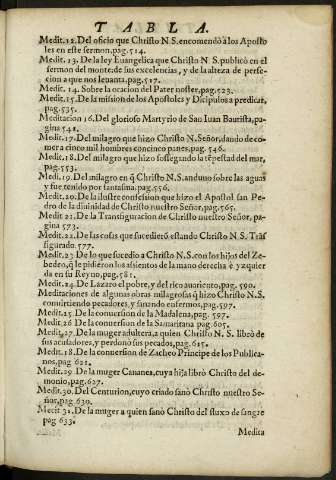 TABLA.
Medit. 12. Del oficio que Christo N S. encomendò à los Aposto
les en este sermon, pag. 514.
Medit. 13. De la ley Euangelica que Christo N S. publicò en el
sermon del monte: de sus excelencias, y de la alteza de perfe-
cion a que nos leuanta, pag. 517.
Medit. 14. Sobre la oracion del Pater noster, pag. 523.
Medit. 15. De la mission de los Apostoles y Dicipulos a predicar,
pag. 535.
Meditacion 16. Del glorioso Martyrio de San Iuan Bautista, pa-
gina 541.
Medit. 17. Del milagro que hizo Christo N. Señor, dando de co-
mer a cinco mil hombres concinco panes, pag. 546.
Medit. 18. Del milagro que hizo sossegando la tẽpestad del mar,
pag. 553.
Medi. 19. Del milagro en q̃ Christo N. S. anduuo sobre las aguas
y fue tenido por fantasma. pag. 556.
Medit. 20. De la ilustre confession que hizo el Apostol san Pe-
dro de la diuinidad de Christo nuestro Señor, pag. 565.
Medit 21. De la Transfiguracion de Christo nuestro Señor, pa-
gina 573.
Medit 22. De las cosas que sucedierõ estando Christo N. S. Trãs
figurado. 577.
Medit. 23 De lo que sucedio a Christo N.S. con los hijos del Ze-
bedeo, q̃ le pidieron los asientos de la mano derecha è yzquier
da en su Reyno, pag. 581.
Medit. 24. De Lazaro el pobre, y del rico auariento, pag. 590.
Meditaciones de algunas obras milagrosas q̃ hizo Christo N. S.
conuirtiendo pecadores, y sanando enfermos, pag. 597.
Medit. 25 De la conuersion de la Madalena, pag. 597.
Medit 26 De la conuersion de la Samaritana pag. 605.
Medit. 27. De la muger adultera, a quien Christo N. S. librò de
sus acusadores, y perdonò sus pecados, pag. 615.
Medit. 28. De la conuersion de Zacheo Principe de los Publica-
nos, pag 621.
Medit. 29 De la muger Cananea, cuya hija librò Christo del de-
monio, pag. 627.
Medit. 30. Del Centurion, cuyo criado sanò Christo nuestro Se-
ñor, pag. 630.
Medit 31. De la muger a quien sanò Christo del fluxo de sangre
pag 633.
Medita